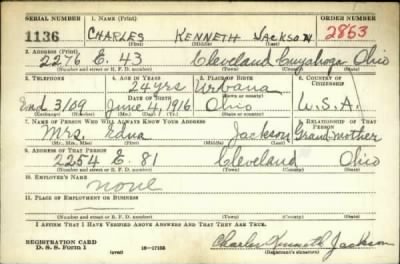 SERIAL NUMBER 1. NAME (Print) ORDER NUMBER
1136 CHARLES KENNETH JACKSON 2853
(First) (Middle) (Last)
2. ADDRESS (Print)
2276 E. 43 Cleveland Cuyahoga Ohio
(Number and street or R. F. D. number) (Town) (County) (State)
3. TELEPHONE 4. AGE IN YEARS 5. PLACE OF BIRTH 6. COUNTRY OF CITIZENSHIP
24 yrs Urbana
DATE OF BIRTH (Town or county)
End 3109 June 4, 1916 Ohio U.S.A.
(Exchange) (Number) (Mo.) (Day) (Yr.) (State or country)
7. NAME OF PERSON WHO WILL ALWAYS KNOW YOUR ADDRESS 8. RELATIONSHIP OF THAT PERSON
Mrs. Edna Jackson Grandmother
(Mr., Mrs., Miss) (First) (Middle) (Last)
9. ADDRESS OF THAT PERSON
2254 E. 81 Cleveland Ohio
(Number and street or R. F. D. number) (Town) (County) (State)
10. EMPLOYER'S NAME
none
11. PLACE OF EMPLOYMENT OR BUSINESS
(Number and street or R. F. D. number) (Town) (County) (State)
I AFFIRM THAT I HAVE VERIFIED ABOVE ANSWERS AND THAT THEY ARE TRUE.
REGISTRATION CARD
D. S. S. Form 1 (over) 16—17105 Charles Kenneth Jackson
(Registrant's signature)